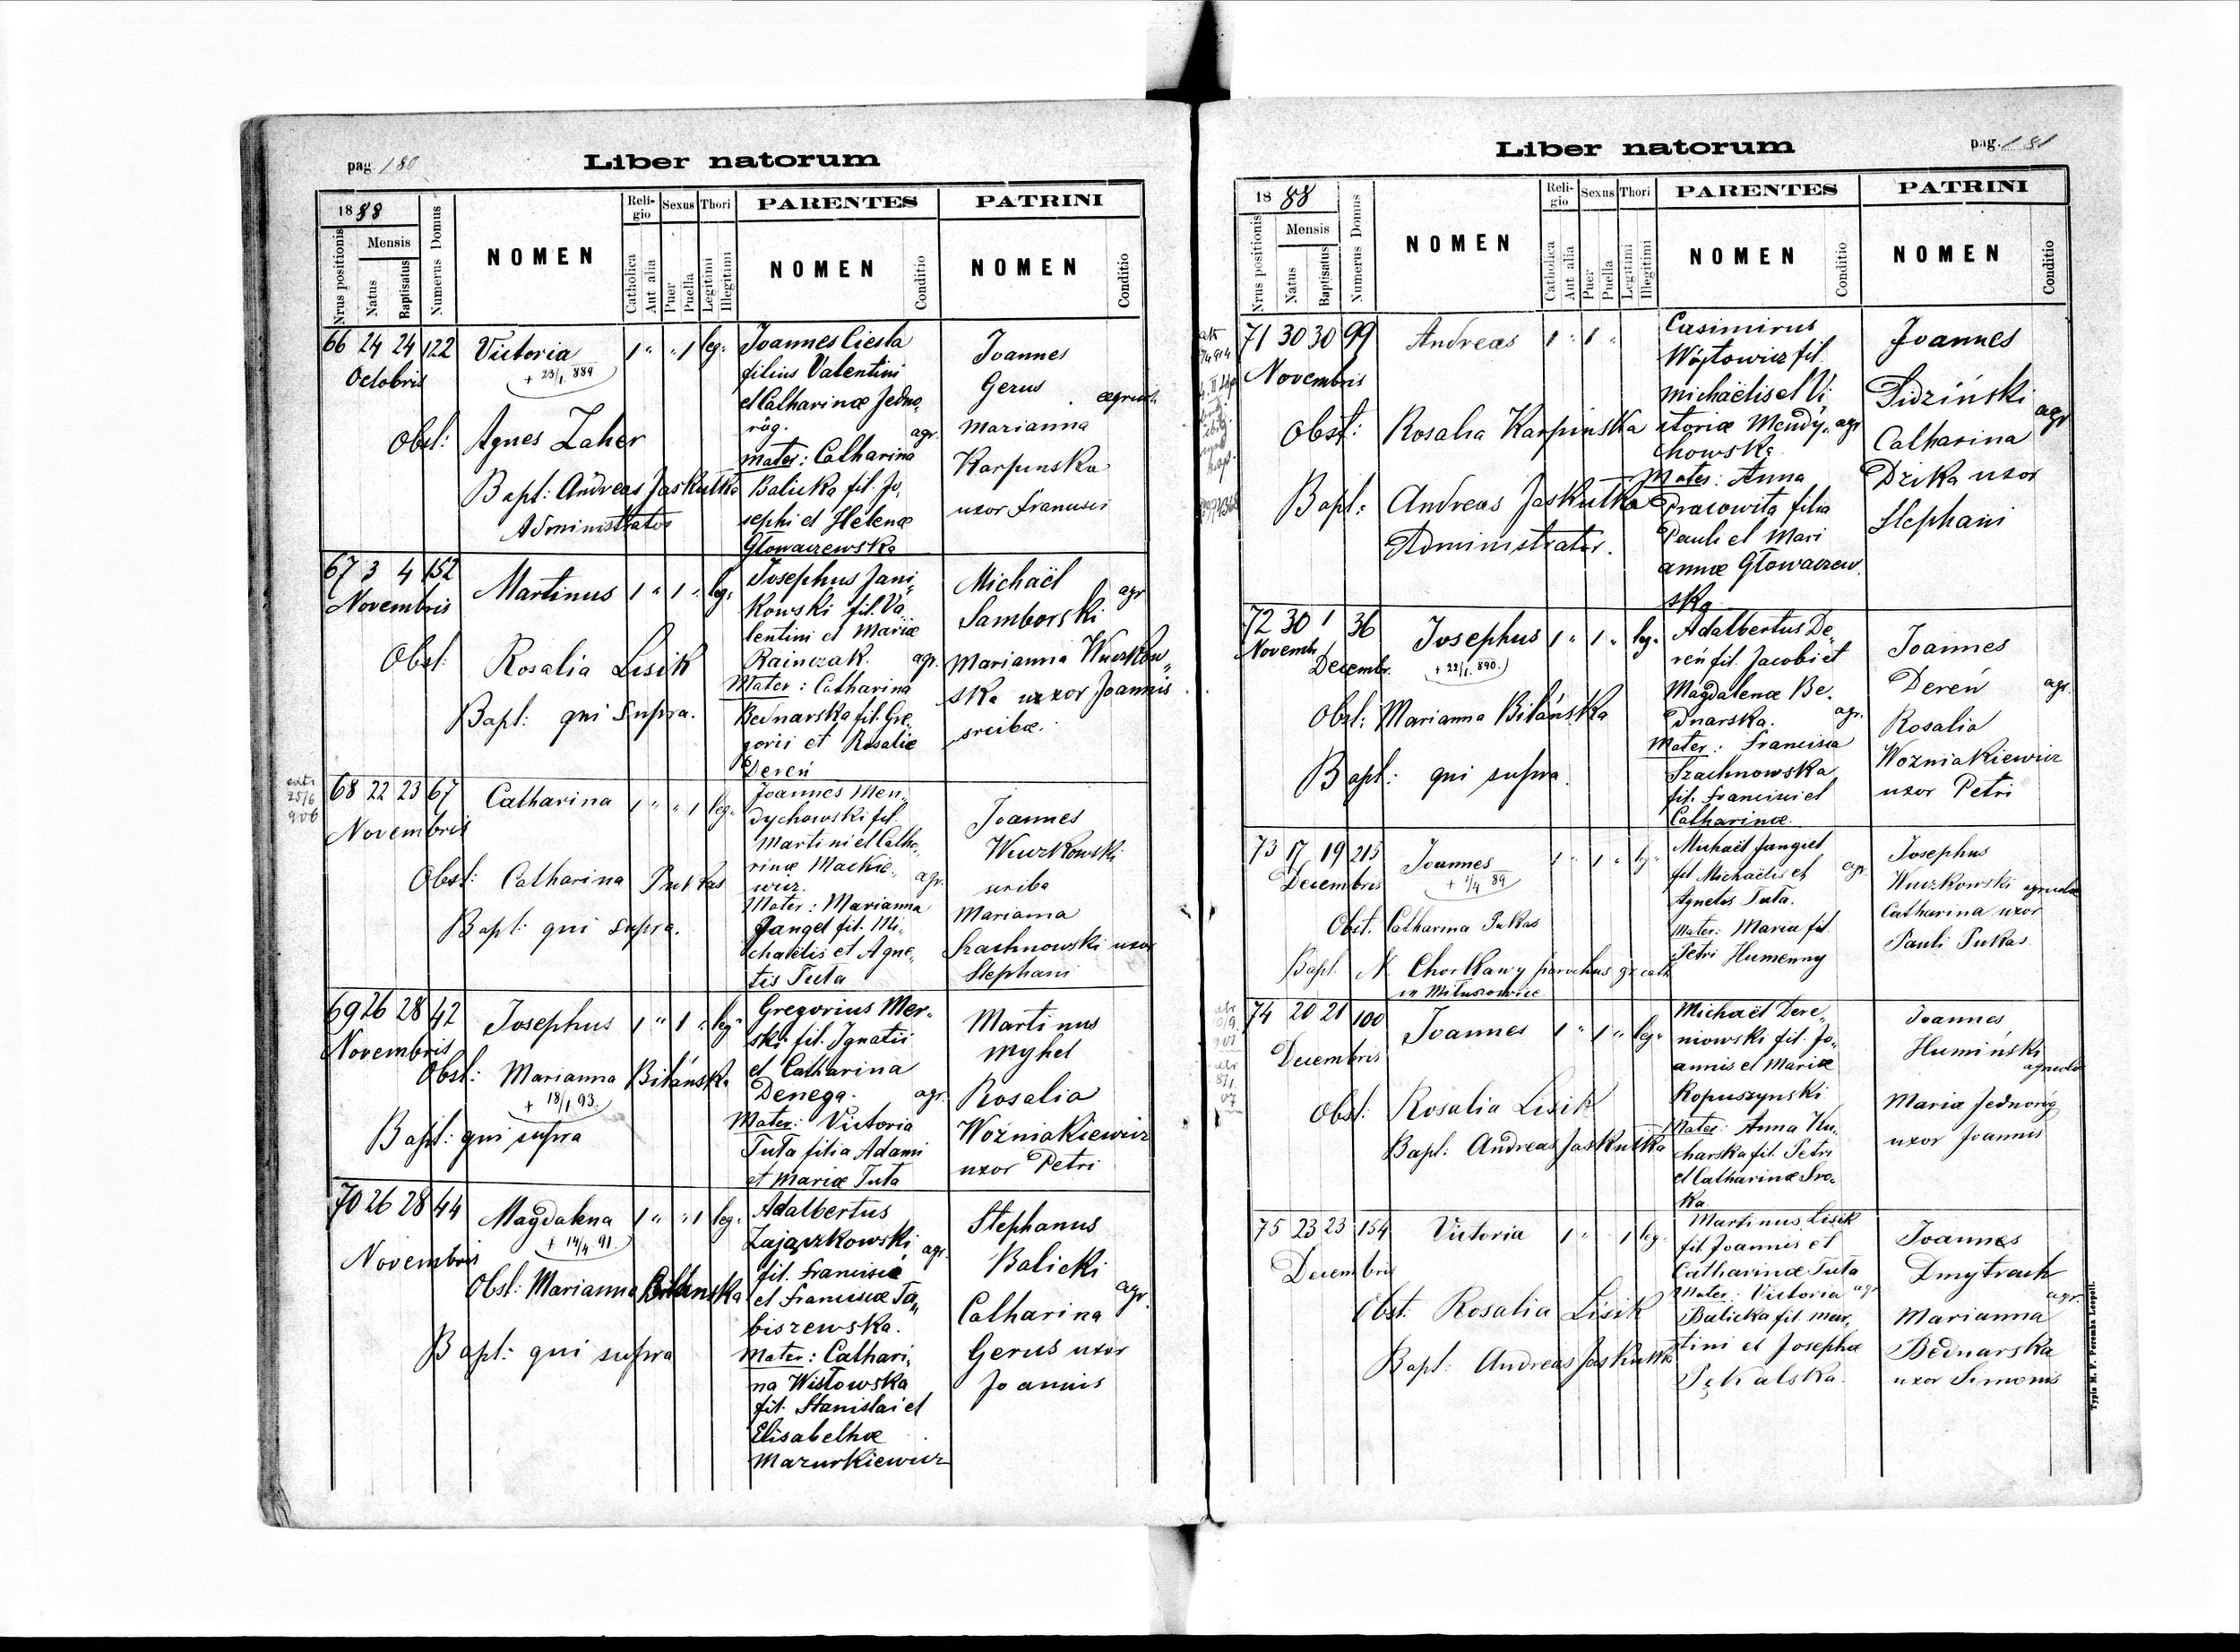 pag. 180
Liber natorum
1888
Nrus positionis
Mensis
Natus
Baptisatus
Numerus Domus
NOMEN
Religio
Catholica
Aut alia
Sexus
Puer
Puella
Thori
Legitimi
Illegitimi
PARENTES
NOMEN
Conditio
PATRINI
NOMEN
Conditio
66 24 24 122 Victoria 1 " " 1 leg.
+ 23/1 889
Octobris
Obst: Agnes Zaher
Bapt: Andreas Jaskułka
Administrator
Joannes Cieśla
filius Valentini
et Catharinæ Jedno,
róg. agr.
Mater: Catharina
Balicka fil. Jo,
sephi et Helenæ
Głowaczewska
Joannes
Gerus
Marianna
Karpinska
uxor Francisci
67 3 4 152 Martinus 1 " 1 " leg.
Novembris
Obst: Rosalia Lisik
Bapt: qui supra.
Josephus Jani,
kowski fil. Va
lentini et Mariæ
Rainczak. agr.
Mater: Catharina
Bednarska fil. Gre,
gorii et Rosaliæ
Dereń
Michaël agr
Samborski
Marianna Wuczkow,
ska uxor Joannis
scribæ.
extr
25/6
906
68 22 23 67 Catharina 1 " " 1 leg.
Novembris
Obst: Catharina Pukas
Bapt: qui supra.
Joannes Men,
dychowski fil.
Martini et Catha,
rinæ Mackie,
wicz. agr.
Mater: Marianna
Jangel fil. Mi,
chaëlis et Agne,
tis Tuta
Joannes
Wuczkowski
scriba
Marianna
Szachnowski uxor
Stephani
69 26 28 42 Josephus 1 " 1 " leg.
Novembris
Obst: Marianna Bilánska
+ 18/1 93.
Bapt: qui supra
Gregorius Mer,
ski fil. Ignatii
et Catharina
Denega. agr.
Mater: Victoria
Tuta filia Adami
et Mariæ Tuta
Martinus
Myhel
Rosalia
Woźniakiewicz
uxor Petri
70 26 28 44 Magdalena 1 " " 1 leg.
+ 14/4 91
Novembris
Obst: Marianna Bilanska
Bapt: qui supra
Adalbertus
Zajączkowski agr.
fil. Francisci
et Franciscæ Ta,
biszewska.
Mater: Cathari,
na Wisłowska
fil. Stanislai et
Elisabethæ
Mazurkiewicz
Stephanus
Balicki
agr.
Catharina
Gerus uxor
Joannis
pag. 181
Liber natorum
1888
Nrus positionis
Mensis
Natus
Baptisatus
Numerus Domus
NOMEN
Religio
Catholica
Aut alia
Sexus
Puer
Puella
Thori
Legitimi
Illegitimi
PARENTES
NOMEN
Conditio
PATRINI
NOMEN
Conditio
71 30 30 99 Andreas 1 " 1 "
Novembris
Obst: Rosalia Karpinska
Bapt: Andreas Jaskułka
Administrator.
Casimirus
Wójtowicz fil.
Michaëlis et Vi
ctoriæ Mendy, agr
chowska
Mater: Anna
Pracowita filia
Pauli et Mari
annæ Głowaczew.
ska
Joannes
Sidziński
agr
Catharina
Dzika uxor
Stephani
72 30 1 36 Josephus 1 " 1 " leg.
+ 22/1. 890.
Novemb.
Decembr.
Obst: Marianna Bilánska
Bapt: qui supra.
Adalbertus De,
reń fil. Jacobi et
Magdalenæ Be,
dnarska. agr.
Mater: Francisca
Szachnowska
fil. Francisci et
Catharinæ.
Joannes
Dereń agr.
Rosalia
Wozniakiewicz
uxor Petri
73 17 19 215 Joannes 1 " 1 " leg.
+ 1/4 89
Decembris
Obst. Catharina Pukas
Bapt. N Chorkawy parochus gr cath
in Mituszowice
Michaël Jangiel
fil Michaëlis et agr.
Agnetis Tuta.
Mater: Maria fil
Petri Humenny
Josephus
Wuczkowski
Catharina uxor
Pauli Pukas
74 20 21 100 Joannes 1 " 1 " leg.
Decembris
Obst: Rosalia Lisik
Bapt: Andreas Jaskułka
Michaël Dere,
niowski fil. Jo,
annis et Mariæ
Kopuszynski
Mater: Anna Ku,
charska fil. Petri
et Catharinæ Sro,
ka
Joannes
Humiński
Maria Jednoróg
uxor Joannis
75 23 23 154 Victoria 1 " 1 leg.
Decembris
Obst. Rosalia Lisik
Bapt: Andreas Jaskułka
Martinus Lisik
fil. Joannis et
Catharinæ Tuta
Mater: Victoria agr
Balicka fil. Mar,
tini et Josephæ
Pękalska.
Joannes
Dmytrach
agr.
Marianna
Bednarska
uxor Simonis
Typis M. F. Poremba Leopoli.